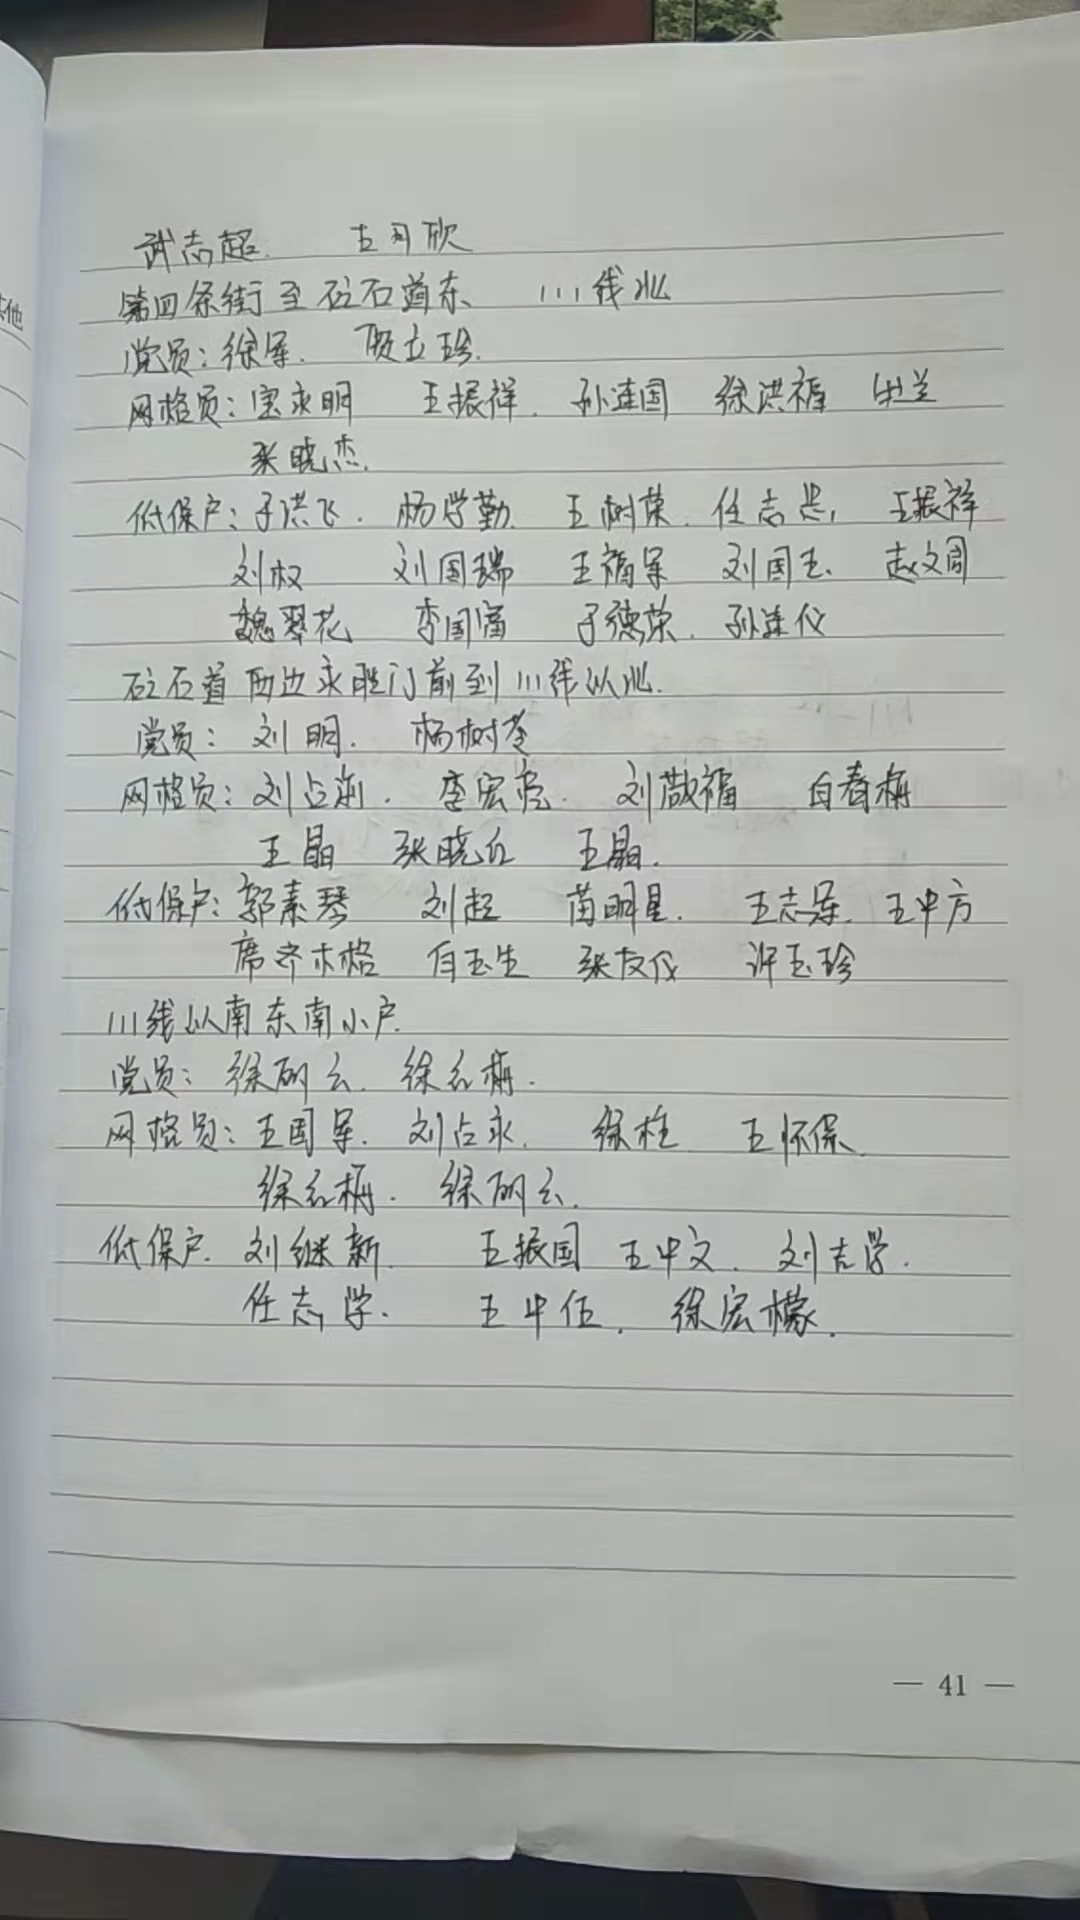 其他
武志超 王可欣
第四条街至砬石道东 111线北
党员：徐军. 贾立珍.
网格员：宝永明 王振祥. 孙连国 徐洪福
张晓杰.
低保户：于洪飞. 杨学勤. 王树荣. 任志 王振祥
刘权 刘国瑞 王福军 刘国玉. 赵文阁
魏翠花 李国富 于德荣. 孙连仪
砬石道西边永胜门前到111线以北.
党员： 刘明. 杨树苓
网格员：刘占 李宏亮. 刘敬福 白春梅
王晶 张晓红 王晶.
低保户：郭素琴 刘起 苗明星. 王志军. 王中方
席齐木格 白玉生 张友仪 许玉珍
111线以南东南小户.
党员： 徐丽云. 徐红梅.
网格员：王国军. 刘占永. 徐柱 王怀保.
徐红梅. 徐丽云.
低保户. 刘继新. 王振国 王中文. 刘志学.
任志学. 王中伍. 徐宏檬.
— 41 —